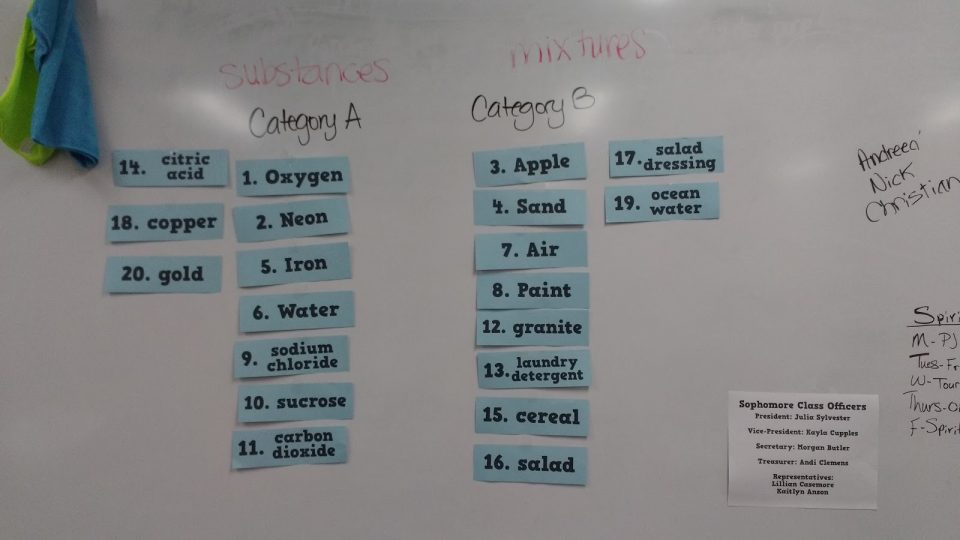 substances
Category A
14. citric
acid
18. copper
20. gold
1. Oxygen
2. Neon
5. Iron
6. Water
9. sodium
chloride
10. sucrose
11. carbon
dioxide
mixtures
Category B
3. Apple
4. Sand
7. Air
8. Paint
12. granite
13. laundry
detergent
15. cereal
16. salad
17. salad
dressing
19. ocean
water
Andreea
Nick
Christian
Spiri
M-PJ
Tues-Fr
W-Tour
Thurs-O
F-Spirit
Sophomore Class Officers
President: Julia Sylvester
Vice-President: Kayla Cupples
Secretary: Morgan Butler
Treasurer: Andi Clemens
Representatives:
Lillian Casemore
Kaitlyn Anson